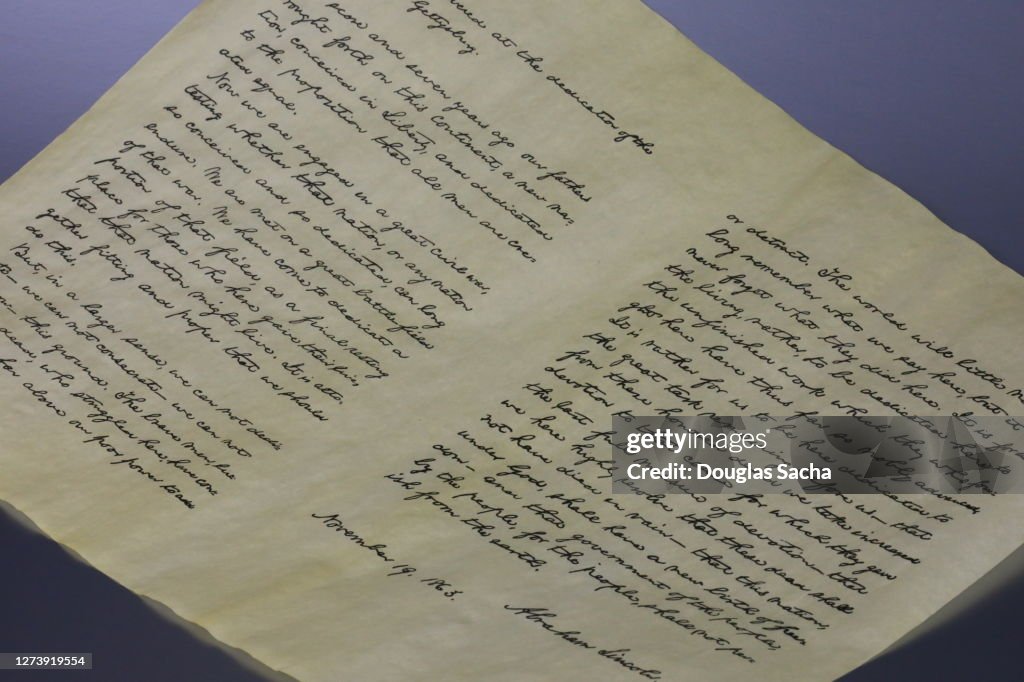 at the dedication of the
Gettysburg
score and seven years ago our fathers
ought forth on this continent, a new na-
tion, conceived in Liberty, and dedicated
to the proposition that all men are cre-
ated equal.
Now we are engaged in a great civil war,
testing whether that nation, or any nation
so conceived and so dedicated, can long
endure. We are met on a great battlefield
of that war. We have come to dedicate a
portion of that field, as a final resting
place for those who here gave their lives,
that that nation might live. It is alto-
gether fitting and proper that we should
do this.
But, in a larger sense, we can not dedi-
we can not consecrate — we can not
this ground. The brave men,
dead, who struggled here have con
far above our poor power to add
or detract. The world will little
long remember what we say here, but it
never forget what they did here. It is for
the living, rather, to be dedicated here to
the unfinished work which they who
here have thus far so nobly advanced.
It is rather for us to be here dedicated to
the great task remaining before us — that
from these honored dead we take increased
devotion to that cause for which they gave
the last full measure of devotion — that
we here highly resolve that these dead shall
not have died in vain — that this nation,
under God, shall have a new birth of free-
dom — and that government of the people,
by the people, for the people, shall not per-
ish from the earth.
November 19. 1863.
Abraham Lincoln.
gettyimages®
Douglas Sacha
1273919554